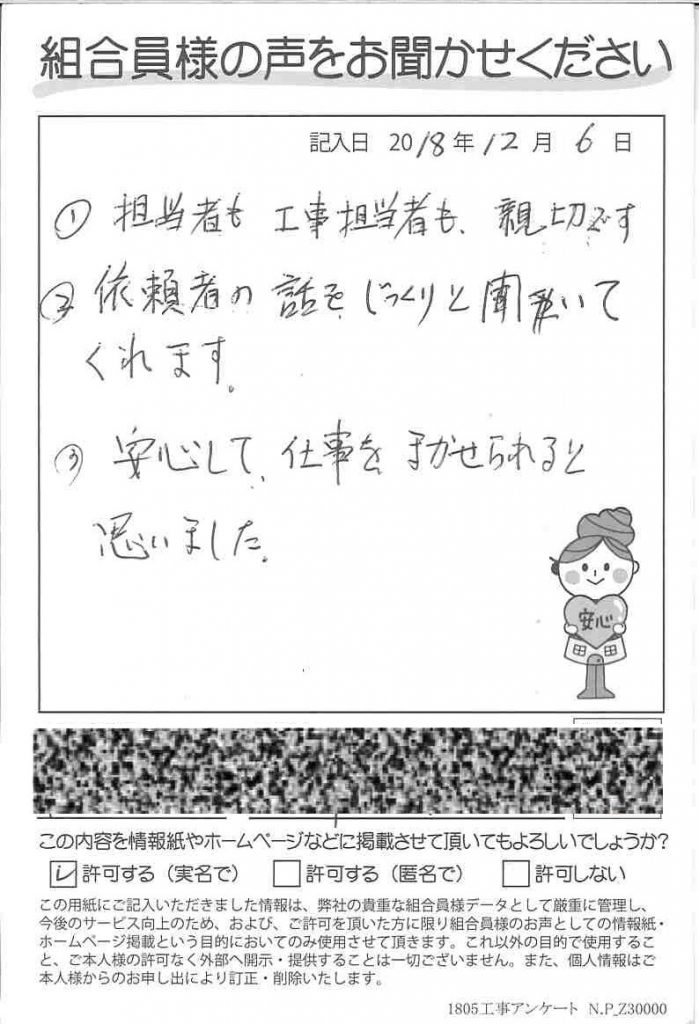 組合員様の声をお聞かせください
記入日 2018年12月6日
① 担当者も 工事担当者も、親切です
② 依頼者の話を、じっくりと聞いて
くれます。
③ 安心して、仕事を まかせられると
思いました。
安心
この内容を情報紙やホームページなどに掲載させて頂いてもよろしいでしょうか?
☑許可する（実名で） □許可する（匿名で） □許可しない
この用紙にご記入いただきました情報は、弊社の貴重な組合員様データとして厳重に管理し、
今後のサービス向上のため、および、ご許可を頂いた方に限り組合員様のお声としての情報紙・
ホームページ掲載という目的においてのみ使用させて頂きます。これ以外の目的で使用するこ
と、ご本人様の許可なく外部へ開示・提供することは一切ございません。また、個人情報はご
本人様からのお申し出により訂正・削除いたします。
1805工事アンケート N.P_Z30000